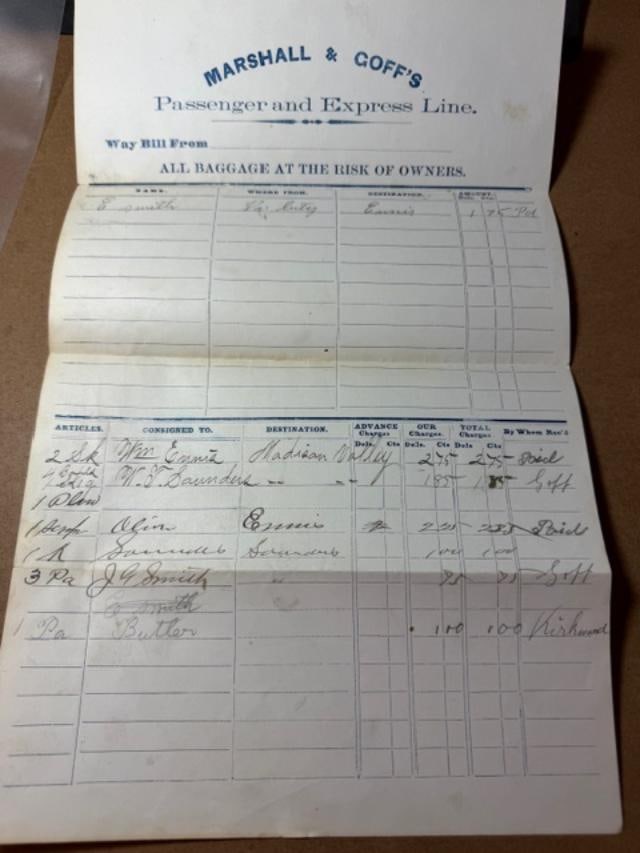 MARSHALL & GOFF'S
Passenger and Express Line.
Way Bill From
ALL BAGGAGE AT THE RISK OF OWNERS.
NAME. WHERE FROM. DESTINATION. AMOUNT. Dols. Cts.
E Smith Va. City Ennis 1 75 Pd
ARTICLES. CONSIGNED TO. DESTINATION. ADVANCE Charges OUR Charges TOTAL Charges By Whom Rec'd
Dols. Cts Dols. Cts Dols. Cts
2 Sk Wm Ennis Madison Valley 2 75 2 75 Paid
W. F. Saunders " " 1 85 1 85 Goff
1 Plow
Olin Ennis 2 25 Paid
Saunders Saunders 1 00 1 00
3 Pa J G Smith " 75 75 Goff
E Smith
1 Pa Butler 1 00 1 00 Kirkwood